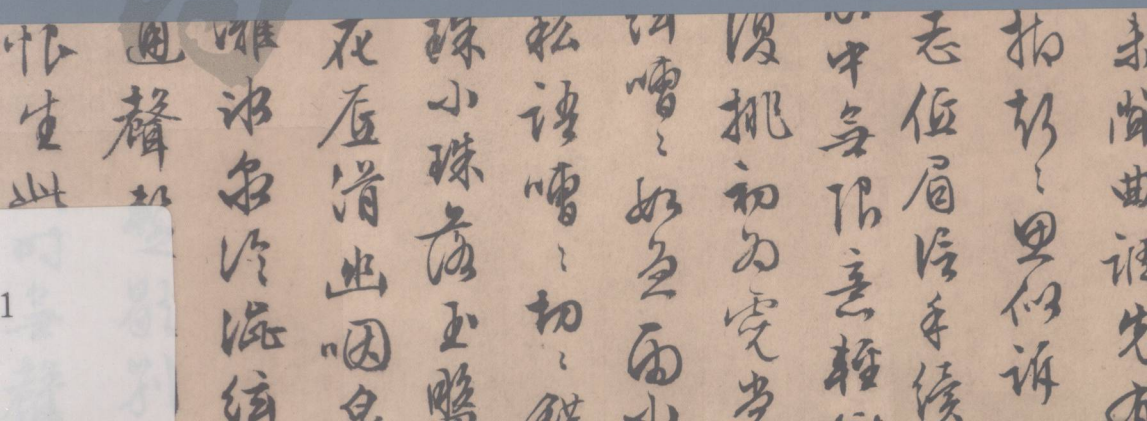 未成曲調先有
抑聲〻思似訴
志低眉信手續
心中無限意輕
復挑初為霓裳
絃嘈〻如急雨小
私語嘈〻切〻錯
珠小珠落玉盤
花底滑幽咽泉
灘冰泉冷澀絃
通聲暫歇別
恨生此時無聲
1